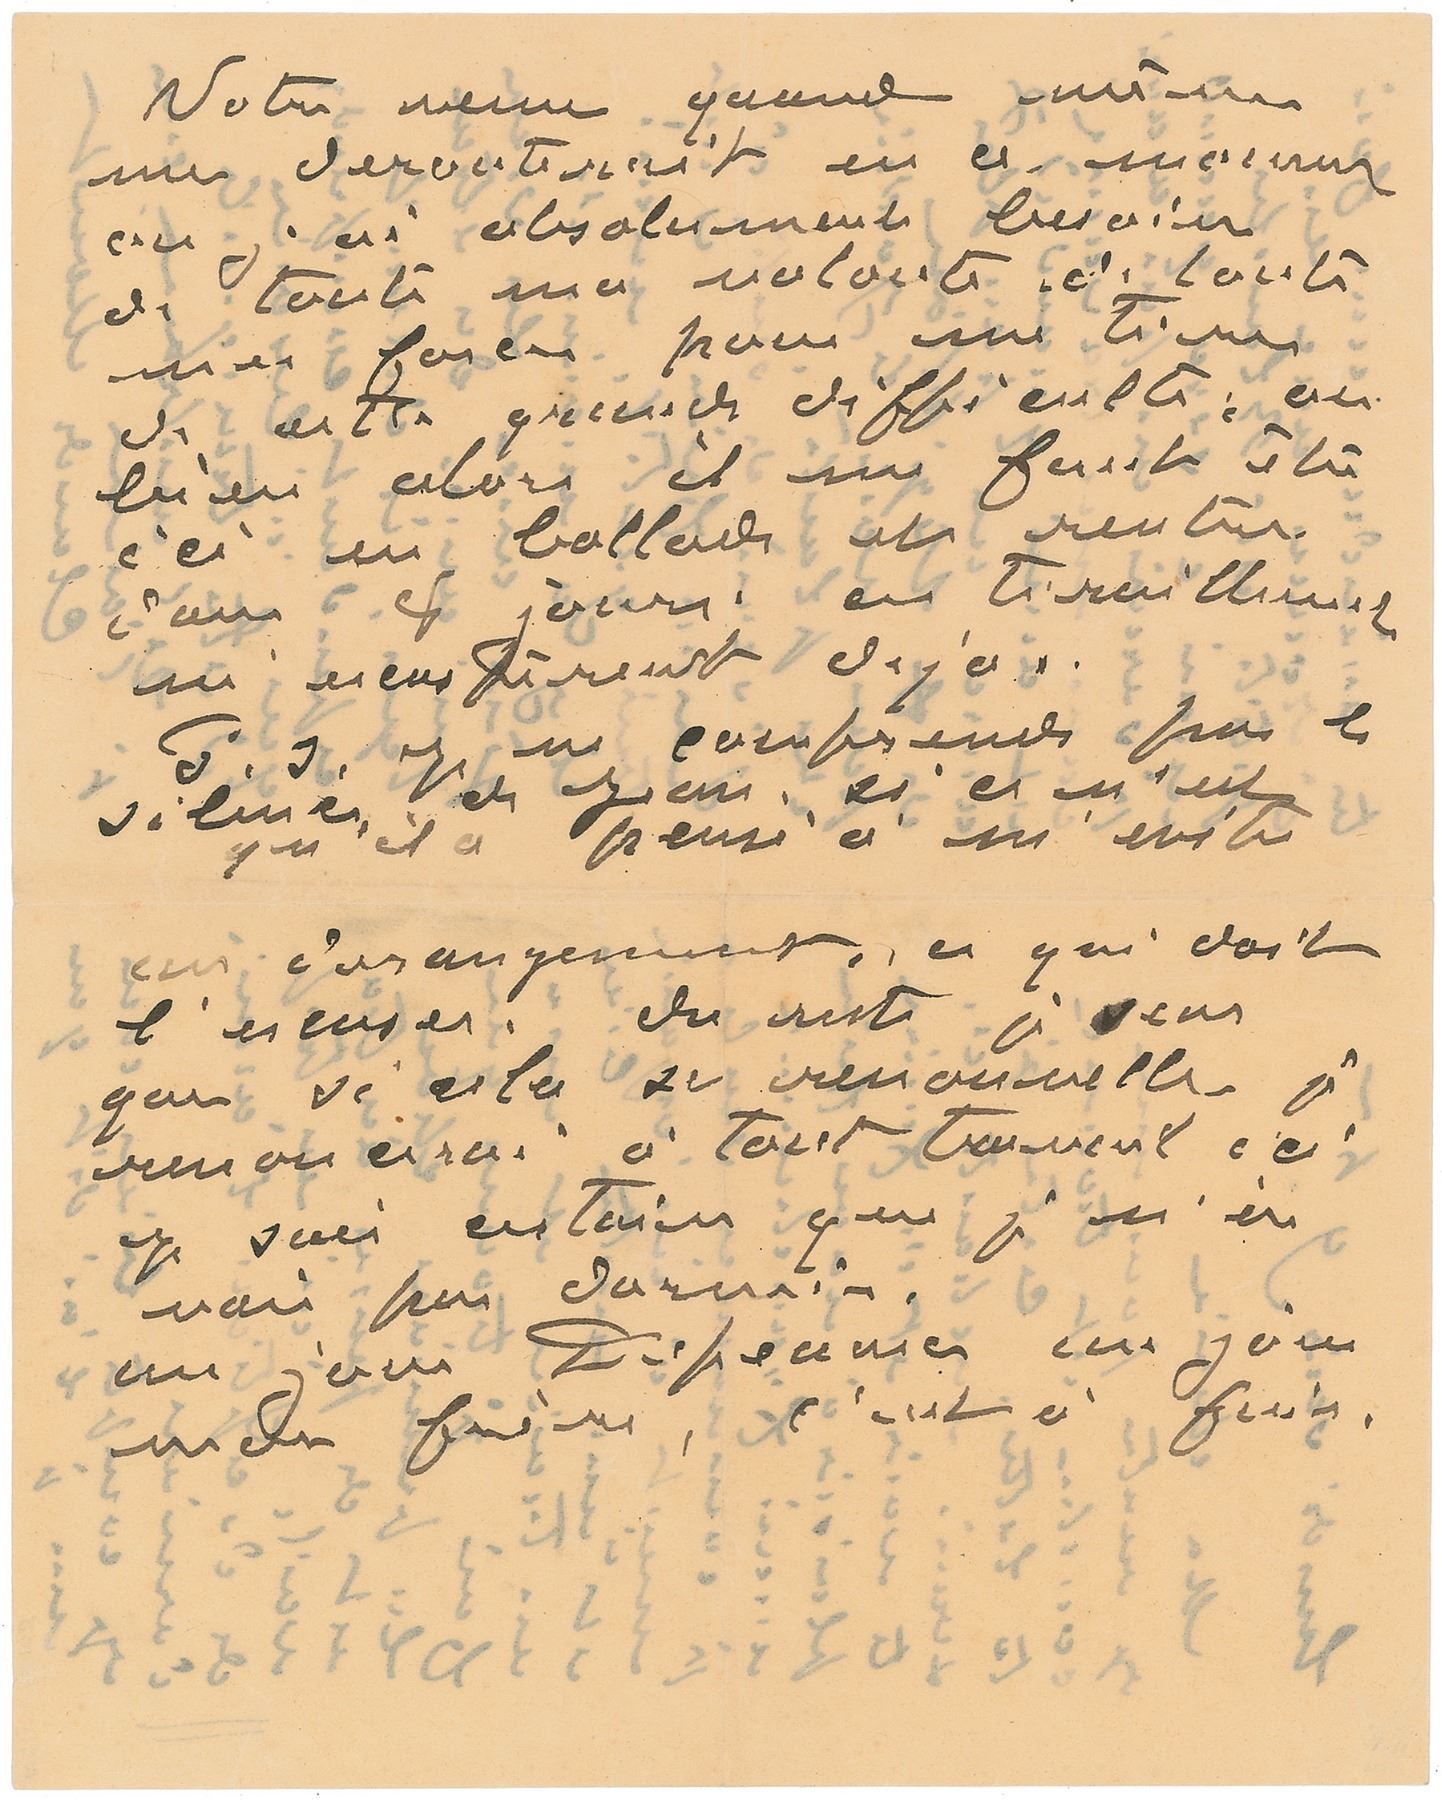 Votre venue quand même
me derouterait en ce moment
car j'ai absolument besoin
de toute ma volonté et toute
mes forces pour me tirer
de cette grande difficulté; ou
bien alors il me faut être
ici en ballade et rentrer
8 jours. ces tiraillements
m'ecœurent deja.
Si je ne comprends pas le
silence, de Jean. si ce n'est
qu'il a pensé à m'eviter
un derangement, ce qui doit
l'excuser. du reste je veux
que si cela se renouvelle je
renoncerai à tout travail ici
je suis certain que je n'en
vais pas dormir.
un jour un jour
mon frère, c'est à fuir.